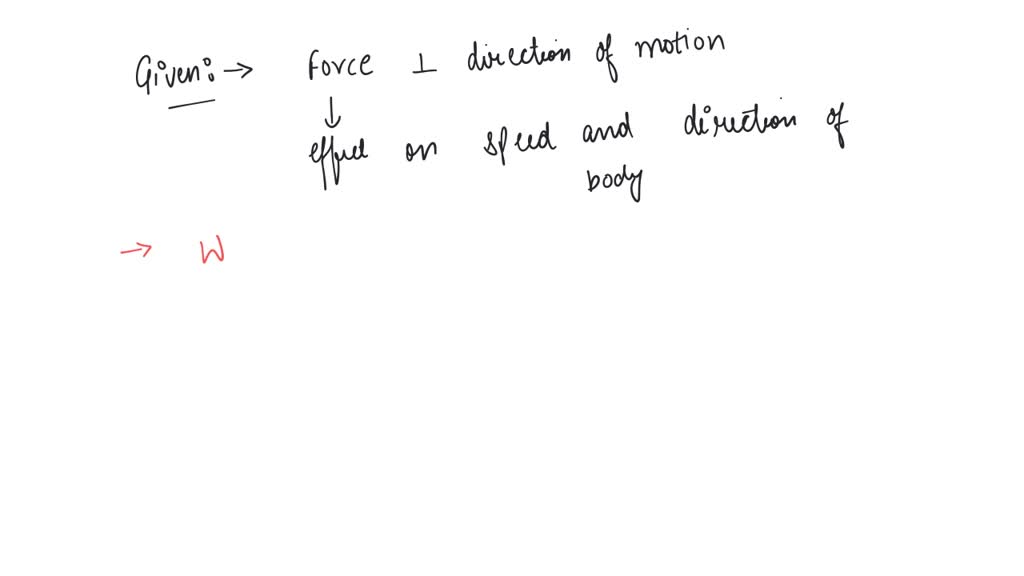 Given: → Force ⊥ direction of motion
↓
effect on speed and direction of
body
→ W